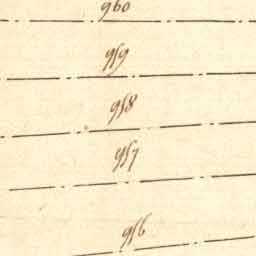 960
959
958
957
956